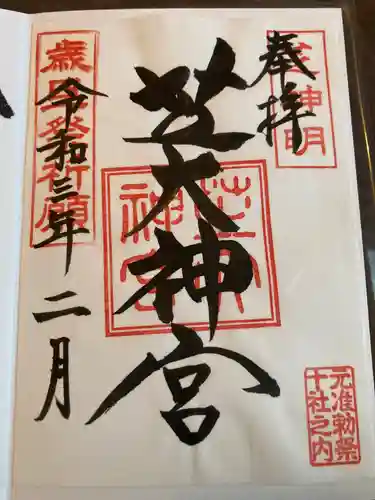 奉拝
芝神明
芝大神宮
芝大神宮
元准勅祭
十社之内
令和三年二月
歳旦祭祈願